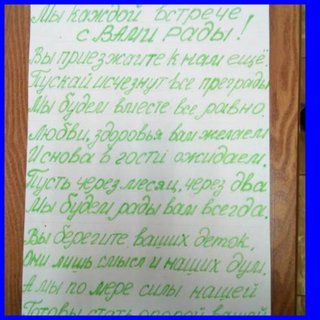 Мы каждой встрече
с ВАМИ рады!
Вы приезжайте к нам ещё
Пускай исчезнут все преграды
Мы будем вместе всё равно.
Любви, здоровья вам желаем
И снова в гости ожидаем.
Пусть через месяц, через два
Мы будем рады вам всегда.
Вы берегите ваших деток.
Они лишь смысл и наших дум.
А мы по мере силы нашей
Готовы стать опорой вашей